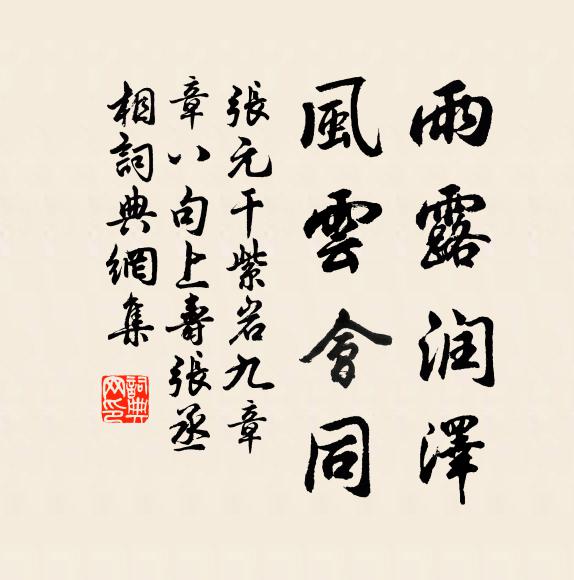 雨露润澤
風雲會同
張元干紫岩九章
章八句上壽張丞
相詞典網集
詞典网印